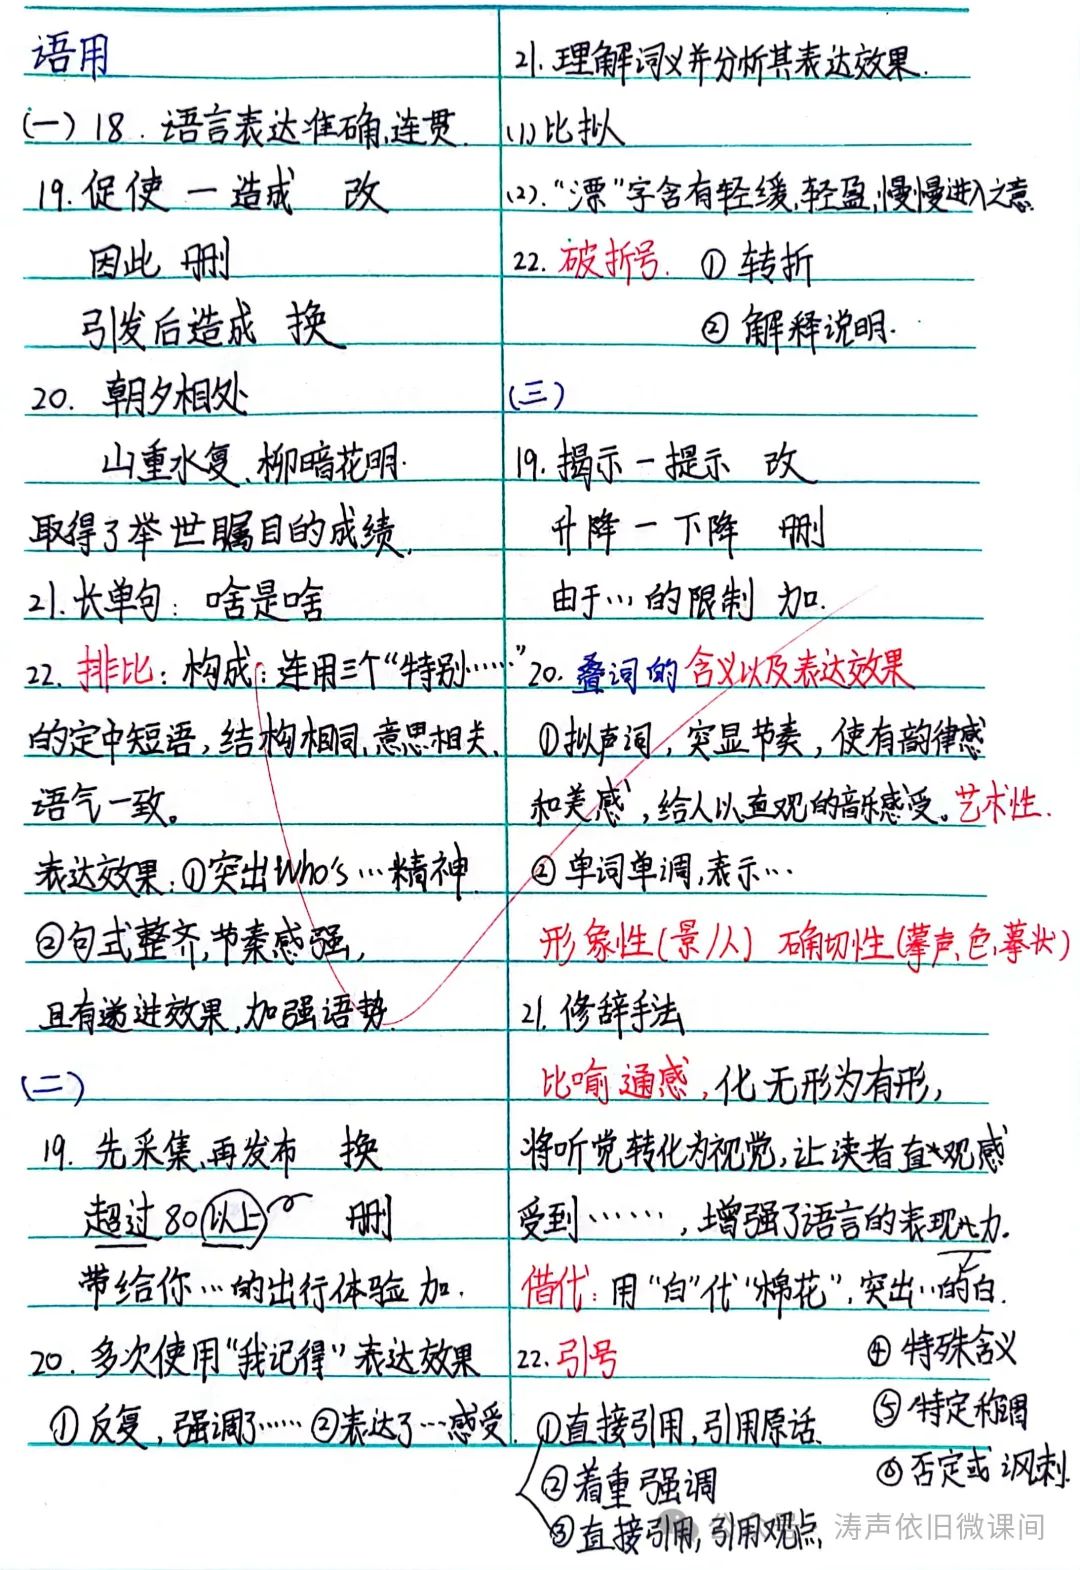 语用
(一) 18. 语言表达准确、连贯.
19. 促使 — 造成 改
因此 删
引发后造成 换
20. 朝夕相处
山重水复、柳暗花明.
取得了举世瞩目的成绩.
21. 长单句: 啥是啥
22. 排比: 构成: 连用三个“特别……”
的定中短语, 结构相同、意思相关、
语气一致。
表达效果: ①突出Who's…精神.
②句式整齐, 节奏感强,
且有递进效果, 加强语势.
(二)
19. 先采集、再发布 换
超过80以上 删
带给你…的出行体验 加.
20. 多次使用“我记得”表达效果
①反复, 强调了…… ②表达了…感受.
21. 理解词义并分析其表达效果.
(1) 比拟
(2). “漂”字含有轻缓、轻盈、慢慢进入之意
22. 破折号. ① 转折
② 解释说明.
(三)
19. 揭示 — 提示 改
升降 — 下降 删
由于…的限制 加.
20. 叠词的含义以及表达效果
①拟声词, 突显节奏, 使有韵律感
和美感, 给人以直观的音乐感受。艺术性.
② 单词单调, 表示…
形象性(景/人) 确切性(摹声、色、摹状)
21. 修辞手法
比喻 通感, 化无形为有形,
将听觉转化为视觉, 让读者直观感
受到……, 增强了语言的表现力.
借代: 用“白”代“棉花”, 突出…的白.
22. 引号
①直接引用, 引用原话.
②着重强调
③直接引用, 引用观点
④ 特殊含义
⑤ 特定称谓
⑥ 否定或讽刺.
公众号 · 涛声依旧微课间